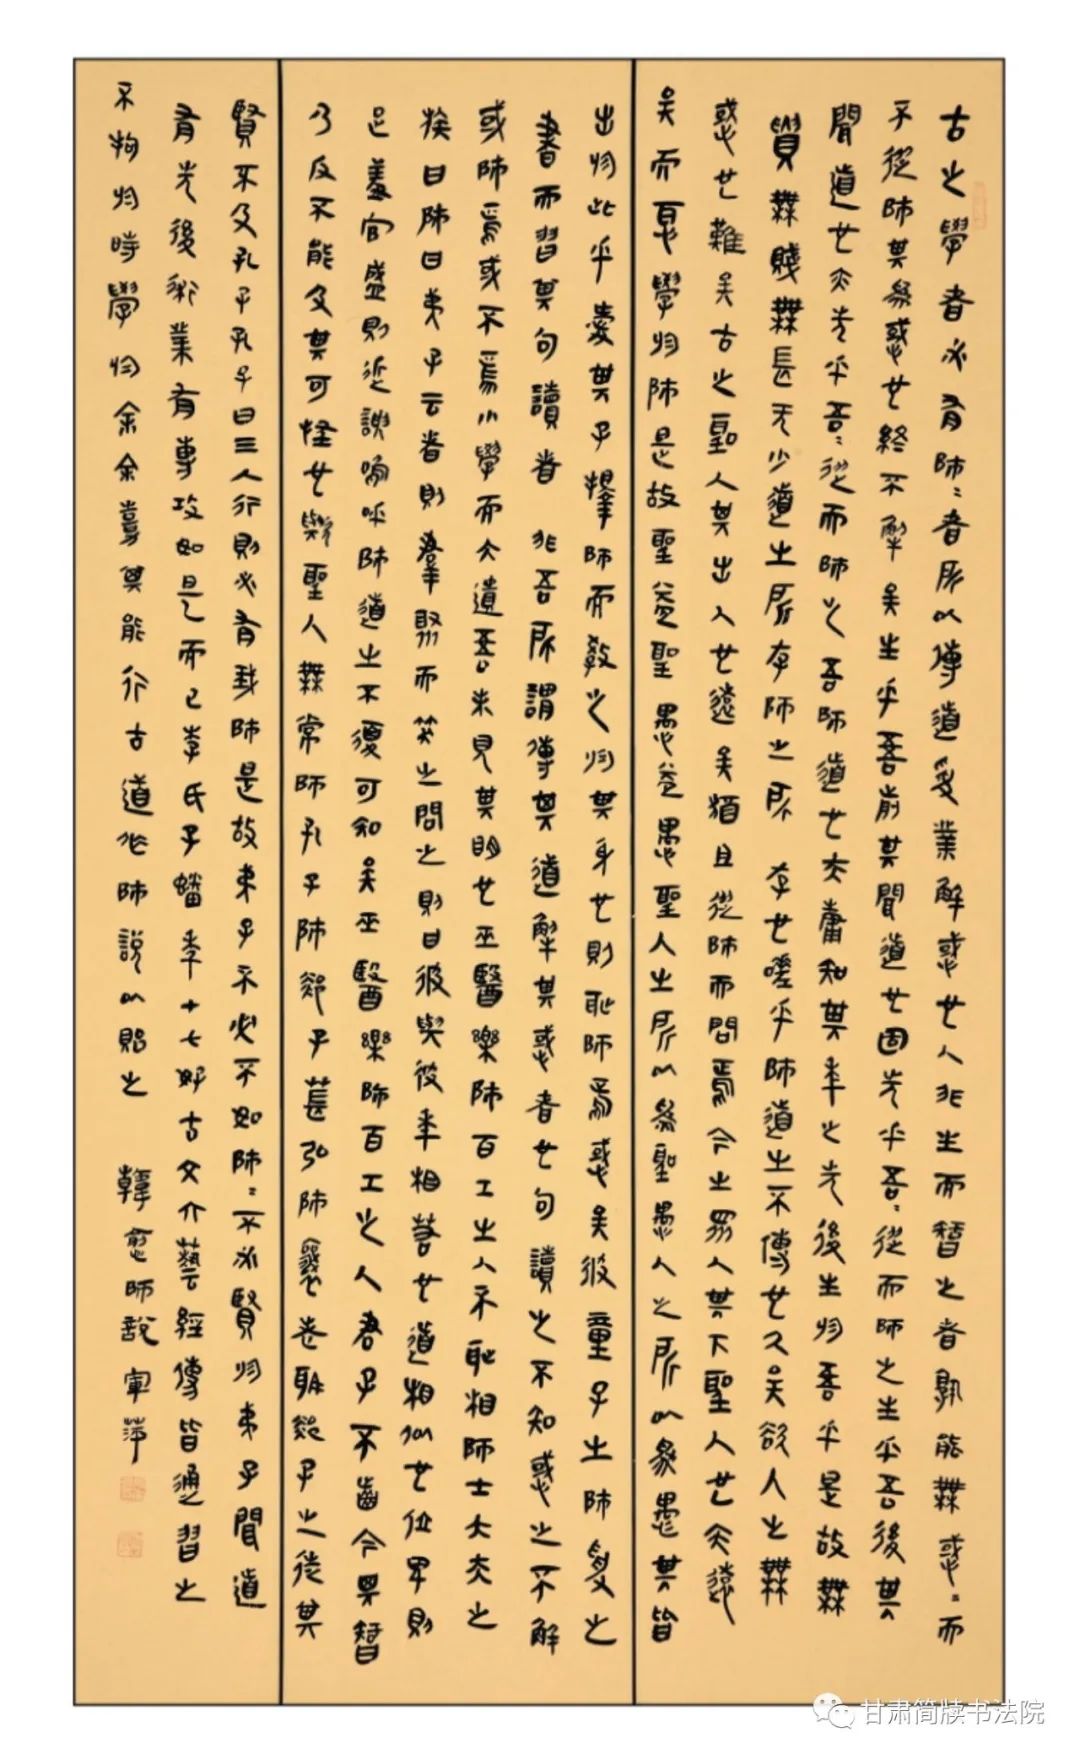 古之學者必有師=者所以傳道受業解惑也人非生而智之者孰能無惑=而
不從師其為惑也終不解矣生乎吾前其聞道也固先乎吾=從而師之生乎吾後其
聞道也亦先乎吾=從而師之吾師道也夫庸知其年之先後生於吾乎是故無
貴無賤無長无少道之所存師之所存也嗟乎師道之不傳也久矣欲人之無
惑也難矣古之聖人其出人也遠矣猶且從師而問焉今之眾人其下聖人也亦遠
矣而恥學於師是故聖益聖愚益愚聖人之所以為聖愚人之所以為愚其皆
出於此乎愛其子擇師而教之於其身也則恥師焉惑矣彼童子之師受之
書而習其句讀者非吾所謂傳其道解其惑者也句讀之不知惑之不解
或師焉或不焉小學而大遺吾未見其明也巫醫樂師百工之人不恥相師士大夫之
族曰師曰弟子云者則群聚而笑之問之則曰彼與彼年相若也道相似也位卑則
足羞官盛則近諛嗚呼師道之不復可知矣巫醫樂師百工之人君子不齒今其智
乃反不能及其可怪也歟聖人無常師孔子師郯子萇弘師襄老聃郯子之徒其
賢不及孔子孔子曰三人行則必有我師是故弟子不必不如師=不必賢於弟子聞道
有先後術業有專攻如是而已李氏子蟠年十七好古文六藝經傳皆通習之
不拘於時學於余余嘉其能行古道作師說以貽之 韓愈師說 寧萍
甘肃简牍书法院